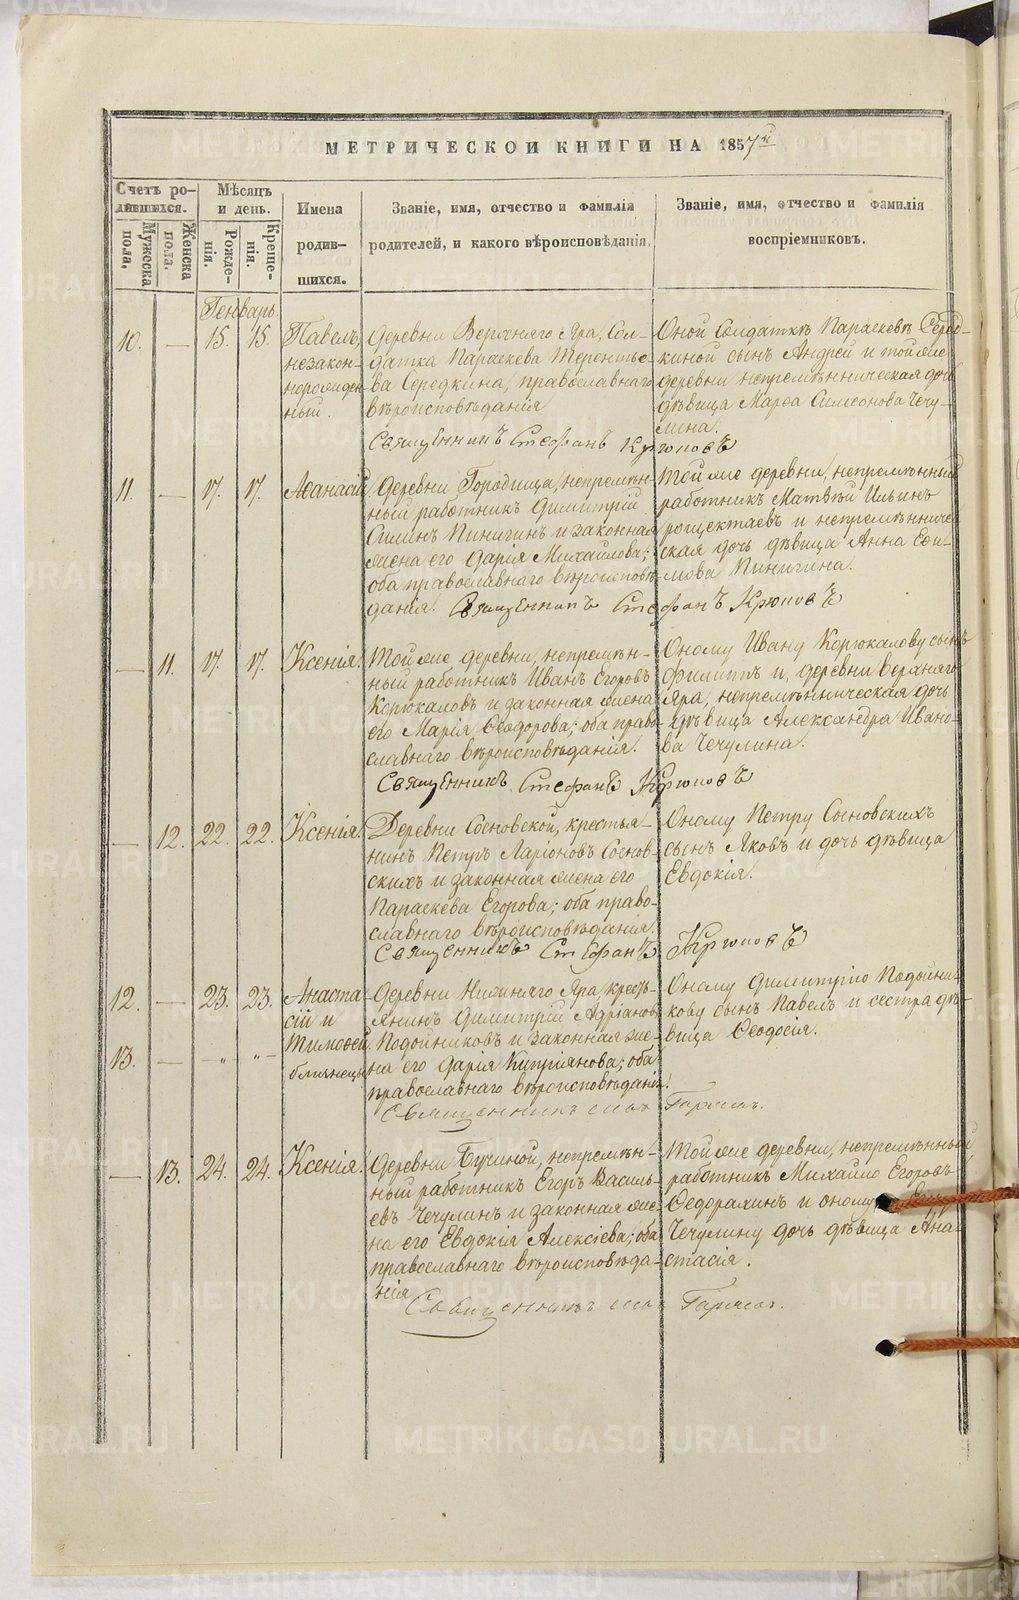 МЕТРИЧЕСКОЙ КНИГИ НА 1857й
Счетъ ро-
дившихся.
Мужеска
пола.
Женска
пола.
Мѣсяцъ
и день.
Рожде-
нія.
Креще-
нія.
Имена
родив-
шихся.
Званіе, имя, отчество и фамилія
родителей, и какого вѣроисповѣданія.
Званіе, имя, отчество и фамилія
воспріемниковъ.
Генварь.
10. — 15. 15.
Павелъ,
незакон-
норожден-
ный.
Деревни Верхняго Яра, Сол-
датка Параскева Терентье-
ва Середкина, православнаго
вѣроисповѣданія
Оной Солдаткѣ Параскевѣ Серед-
киной сынъ Андрей и той же
деревни непремѣнническая дочь
дѣвица Марѳа Симеонова Чечу-
лина.
Священникъ Стефанъ Крюковъ
11. — 17. 17.
Аѳанасій
Деревни Городища, непремѣн-
ный работникъ Димитрій
Силинъ Пинигинъ и законная
жена его Дарія Михайлова;
оба православнаго вѣроисповѣ-
данія.
Той же деревни, непремѣнный
работникъ Матвѣй Ильинъ
и непремѣнниче-
ская дочь дѣвица Анна Ефи-
мова Пинигина.
Священникъ Стефанъ Крюковъ
— 11. 17. 17.
Ксенія.
Той же деревни, непремѣн-
ный работникъ Иванъ Егоровъ
Корюкаловъ и законная жена
его Марія Ѳеодорова; оба право-
славнаго вѣроисповѣданія.
Оному Ивану Корюкалову сынъ
Филиппъ и, деревни Верхняго
Яра, непремѣнническая дочь
дѣвица Александра Ивано-
ва Чечулина.
Священникъ Стефанъ Крюковъ
— 12. 22. 22.
Ксенія.
Деревни Сосновской, крестья-
нинъ Петръ Ларіоновъ Соснов-
скихъ и законная жена его
Параскева Егорова; оба право-
славнаго вѣроисповѣданія.
Оному Петру Сосновскихъ
сынъ Яковъ и дочь дѣвица
Евдокія.
Священникъ Стефанъ Крюковъ
12. — 23. 23.
13. — — " — " —
Анаста-
сій и
Тимоѳей
близнецы
Деревни Нижняго Яра, кресть-
янинъ Димитрій Адріановъ
Подойниковъ и законная же-
на его Дарія Кипріянова; оба
православнаго вѣроисповѣданія.
Оному Димитрію Подойни-
кову сынъ Павелъ и сестра дѣ-
вица Ѳеодосія.
Священникъ
— 13. 24. 24.
Ксенія.
Деревни Бугиной, непремѣн-
ный работникъ Егоръ Василь-
евъ Чечулинъ и законная же-
на его Евдокія Алексіева; оба
православнаго вѣроисповѣда-
нія.
Той же деревни, непремѣнный
работникъ Михайло Егоровъ
Ѳедорахинъ и оному
Чечулину дочь дѣвица Ана-
стасія.
Священникъ
METRIKI.GASO-URAL.RU